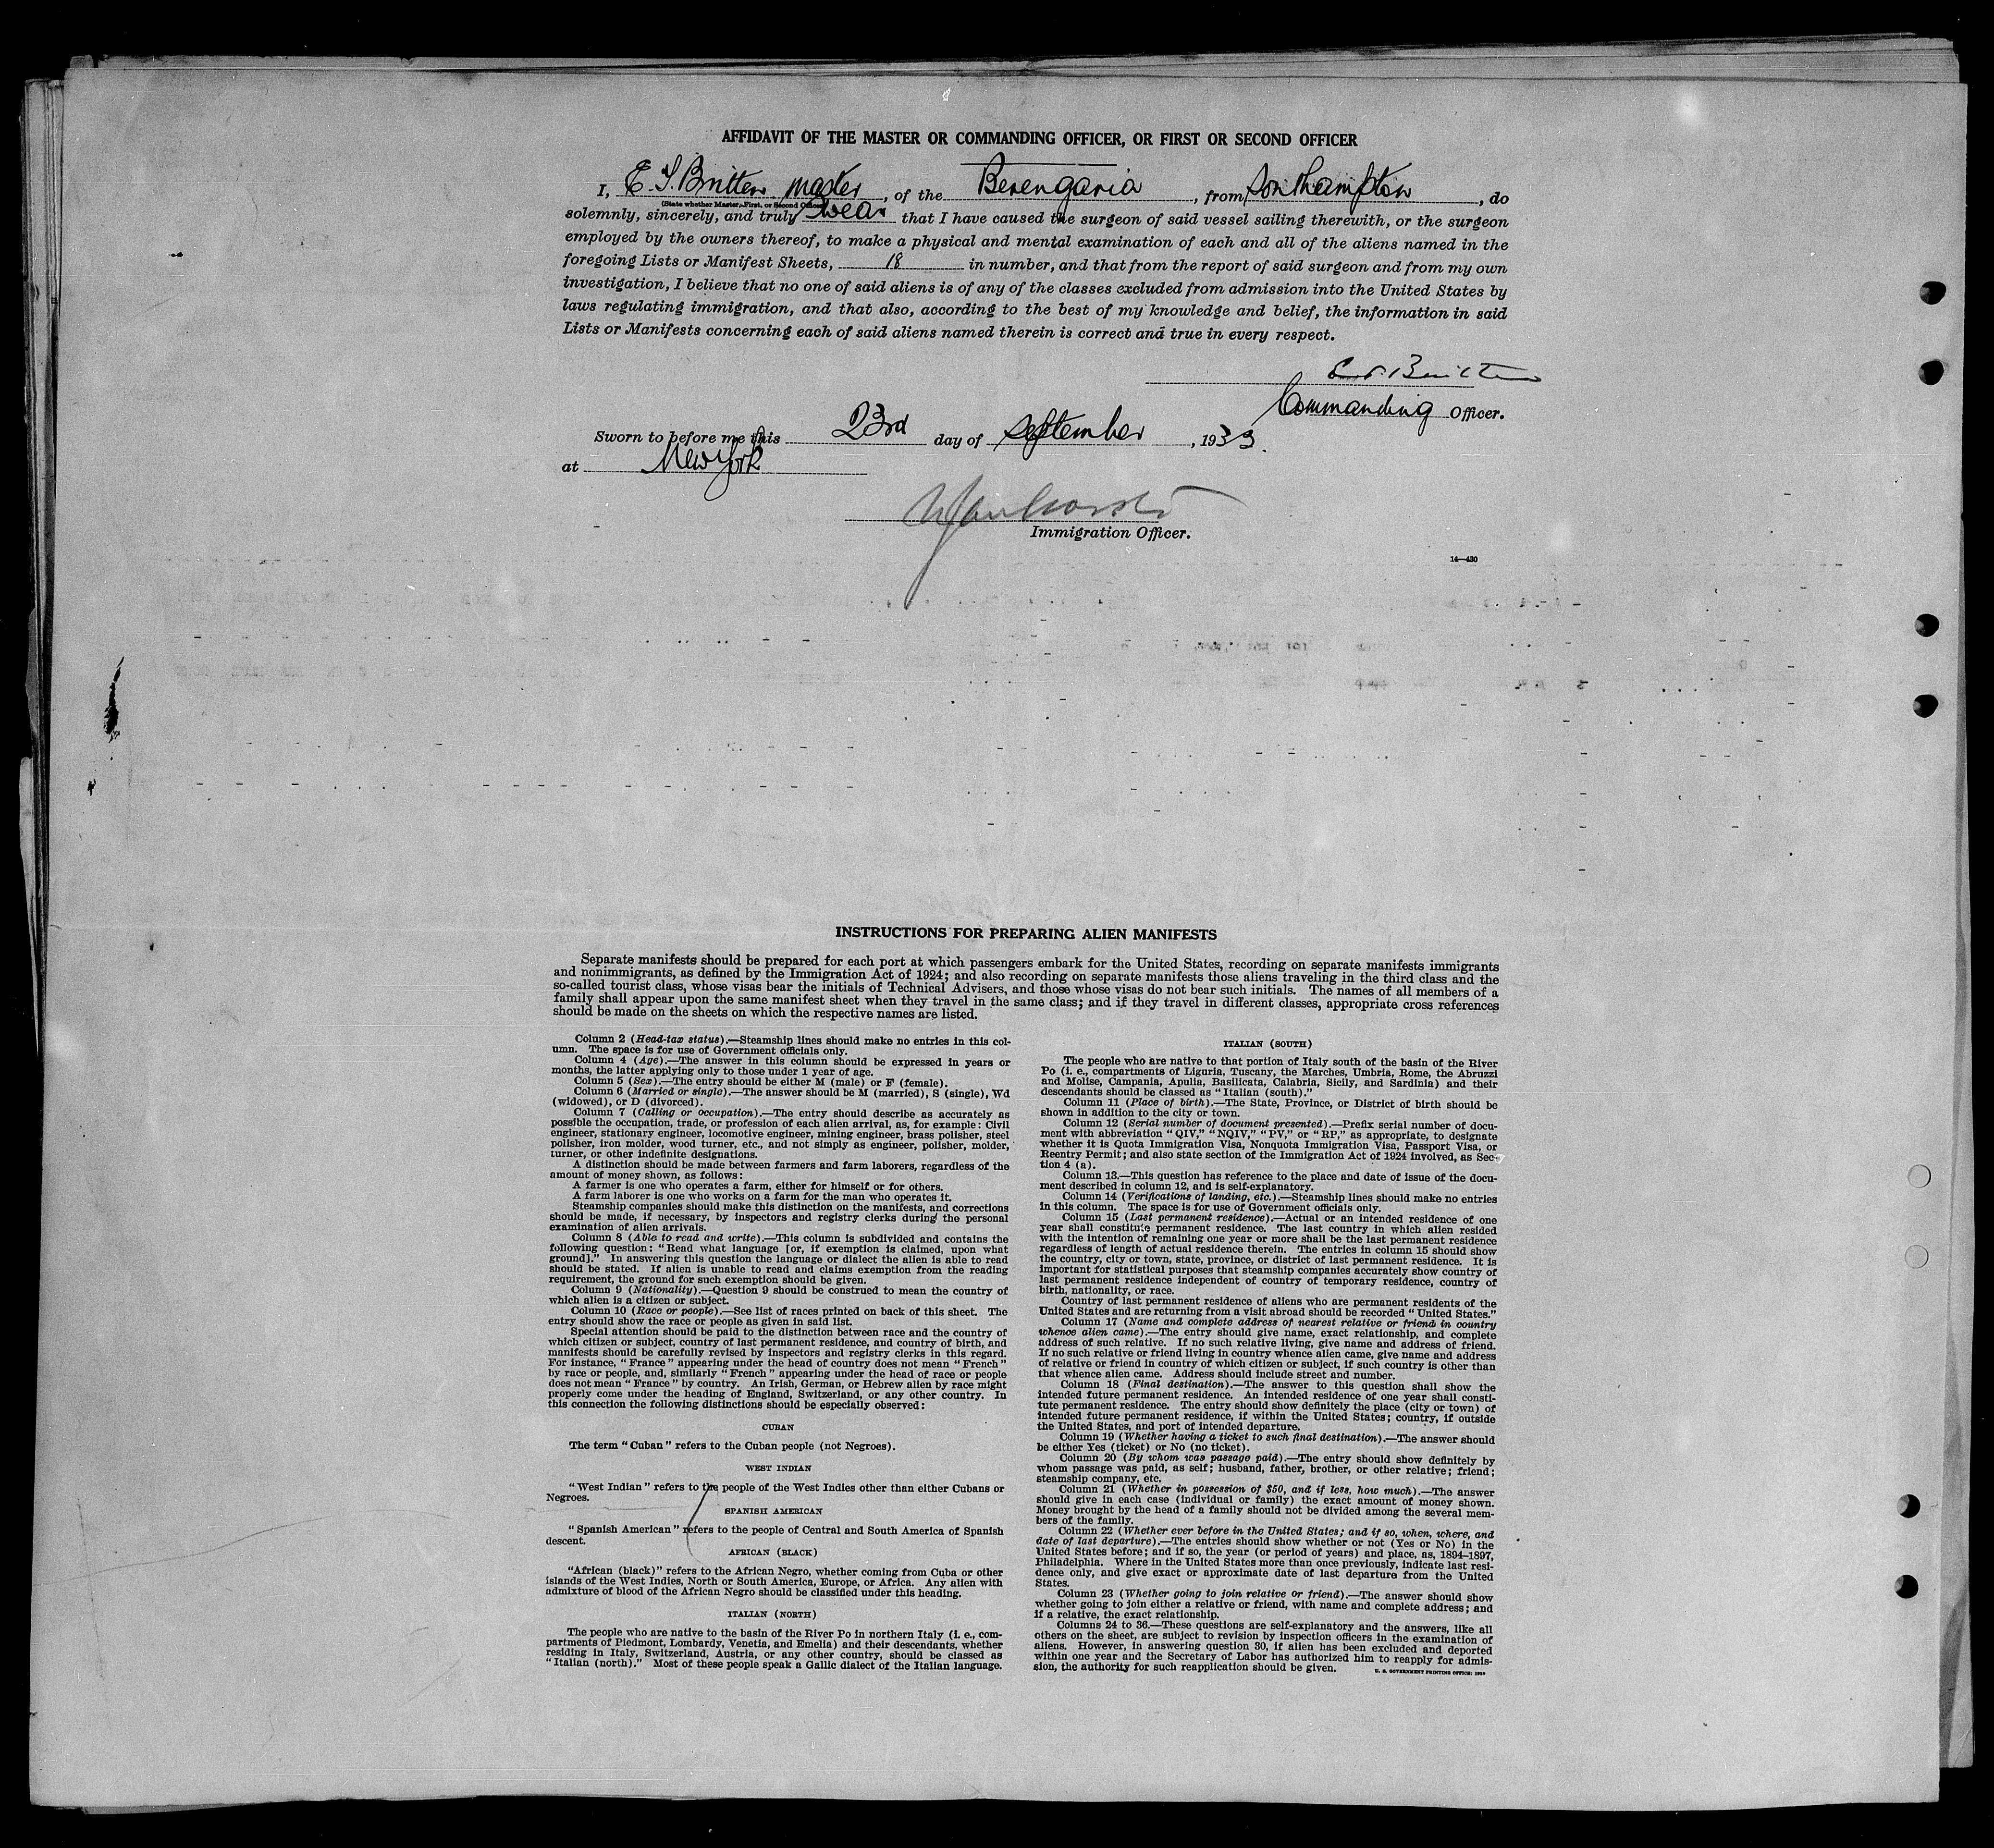 AFFIDAVIT OF THE MASTER OR COMMANDING OFFICER, OR FIRST OR SECOND OFFICER
I, E. S. Britten master, of the Berengaria, from Southampton, do
(State whether Master, First, or Second Officer)
solemnly, sincerely, and truly swear that I have caused the surgeon of said vessel sailing therewith, or the surgeon
employed by the owners thereof, to make a physical and mental examination of each and all of the aliens named in the
foregoing Lists or Manifest Sheets, 18 in number, and that from the report of said surgeon and from my own
investigation, I believe that no one of said aliens is of any of the classes excluded from admission into the United States by
laws regulating immigration, and that also, according to the best of my knowledge and belief, the information in said
Lists or Manifests concerning each of said aliens named therein is correct and true in every respect.
Britten
Commanding Officer.
Sworn to before me this 23rd day of September, 1933.
at New York
Immigration Officer.
14—430
INSTRUCTIONS FOR PREPARING ALIEN MANIFESTS
Separate manifests should be prepared for each port at which passengers embark for the United States, recording on separate manifests immigrants
and nonimmigrants, as defined by the Immigration Act of 1924; and also recording on separate manifests those aliens traveling in the third class and the
so-called tourist class, whose visas bear the initials of Technical Advisers, and those whose visas do not bear such initials. The names of all members of a
family shall appear upon the same manifest sheet when they travel in the same class; and if they travel in different classes, appropriate cross references
should be made on the sheets on which the respective names are listed.
Column 2 (Head-tax status).—Steamship lines should make no entries in this col-
umn. The space is for use of Government officials only.
Column 4 (Age).—The answer in this column should be expressed in years or
months, the latter applying only to those under 1 year of age.
Column 5 (Sex).—The entry should be either M (male) or F (female).
Column 6 (Married or single).—The answer should be M (married), S (single), Wd
(widowed), or D (divorced).
Column 7 (Calling or occupation).—The entry should describe as accurately as
possible the occupation, trade, or profession of each alien arrival, as, for example: Civil
engineer, stationary engineer, locomotive engineer, mining engineer, brass polisher, steel
polisher, iron molder, wood turner, etc., and not simply as engineer, polisher, molder,
turner, or other indefinite designations.
A distinction should be made between farmers and farm laborers, regardless of the
amount of money shown, as follows:
A farmer is one who operates a farm, either for himself or for others.
A farm laborer is one who works on a farm for the man who operates it.
Steamship companies should make this distinction on the manifests, and corrections
should be made, if necessary, by inspectors and registry clerks during the personal
examination of alien arrivals.
Column 8 (Able to read and write).—This column is subdivided and contains the
following question: "Read what language [or, if exemption is claimed, upon what
ground]." In answering this question the language or dialect the alien is able to read
should be stated. If alien is unable to read and claims exemption from the reading
requirement, the ground for such exemption should be given.
Column 9 (Nationality).—Question 9 should be construed to mean the country of
which alien is a citizen or subject.
Column 10 (Race or people).—See list of races printed on back of this sheet. The
entry should show the race or people as given in said list.
Special attention should be paid to the distinction between race and the country of
which citizen or subject, country of last permanent residence, and country of birth, and
manifests should be carefully revised by inspectors and registry clerks in this regard.
For instance, "France" appearing under the head of country does not mean "French"
by race or people, and, similarly "French" appearing under the head of race or people
does not mean "France" by country. An Irish, German, or Hebrew alien by race might
properly come under the heading of England, Switzerland, or any other country. In
this connection the following distinctions should be especially observed:
CUBAN
The term "Cuban" refers to the Cuban people (not Negroes).
WEST INDIAN
"West Indian" refers to the people of the West Indies other than either Cubans or
Negroes.
SPANISH AMERICAN
"Spanish American" refers to the people of Central and South America of Spanish
descent.
AFRICAN (BLACK)
"African (black)" refers to the African Negro, whether coming from Cuba or other
islands of the West Indies, North or South America, Europe, or Africa. Any alien with
admixture of blood of the African Negro should be classified under this heading.
ITALIAN (NORTH)
The people who are native to the basin of the River Po in northern Italy (i. e., com-
partments of Piedmont, Lombardy, Venetia, and Emelia) and their descendants, whether
residing in Italy, Switzerland, Austria, or any other country, should be classed as
"Italian (north)." Most of these people speak a Gallic dialect of the Italian language.
ITALIAN (SOUTH)
The people who are native to that portion of Italy south of the basin of the River
Po (i. e., compartments of Liguria, Tuscany, the Marches, Umbria, Rome, the Abruzzi
and Molise, Campania, Apulia, Basilicata, Calabria, Sicily, and Sardinia) and their
descendants should be classed as "Italian (south)."
Column 11 (Place of birth).—The State, Province, or District of birth should be
shown in addition to the city or town.
Column 12 (Serial number of document presented).—Prefix serial number of docu-
ment with abbreviation "QIV," "NQIV," "PV," or "RP," as appropriate, to designate
whether it is Quota Immigration Visa, Nonquota Immigration Visa, Passport Visa, or
Reentry Permit; and also state section of the Immigration Act of 1924 involved, as Sec-
tion 4 (a).
Column 13.—This question has reference to the place and date of issue of the docu-
ment described in column 12, and is self-explanatory.
Column 14 (Verifications of landing, etc.).—Steamship lines should make no entries
in this column. The space is for use of Government officials only.
Column 15 (Last permanent residence).—Actual or an intended residence of one
year shall constitute permanent residence. The last country in which alien resided
with the intention of remaining one year or more shall be the last permanent residence
regardless of length of actual residence therein. The entries in column 15 should show
the country, city or town, state, province, or district of last permanent residence. It is
important for statistical purposes that steamship companies accurately show country of
last permanent residence independent of country of temporary residence, country of
birth, nationality, or race.
Country of last permanent residence of aliens who are permanent residents of the
United States and are returning from a visit abroad should be recorded "United States."
Column 17 (Name and complete address of nearest relative or friend in country
whence alien came).—The entry should give name, exact relationship, and complete
address of such relative. If no such relative living, give name and address of friend.
If no such relative or friend living in country whence alien came, give name and address
of relative or friend in country of which citizen or subject, if such country is other than
that whence alien came. Address should include street and number.
Column 18 (Final destination).—The answer to this question shall show the
intended future permanent residence. An intended residence of one year shall consti-
tute permanent residence. The entry should show definitely the place (city or town) of
intended future permanent residence, if within the United States; country, if outside
the United States, and port of intended departure.
Column 19 (Whether having a ticket to such final destination).—The answer should
be either Yes (ticket) or No (no ticket).
Column 20 (By whom was passage paid).—The entry should show definitely by
whom passage was paid, as self; husband, father, brother, or other relative; friend;
steamship company, etc.
Column 21 (Whether in possession of $50, and if less, how much).—The answer
should give in each case (individual or family) the exact amount of money shown.
Money brought by the head of a family should not be divided among the several mem-
bers of the family.
Column 22 (Whether ever before in the United States; and if so, when, where, and
date of last departure).—The entries should show whether or not (Yes or No) in the
United States before; and if so, the year (or period of years) and place, as, 1894–1897,
Philadelphia. Where in the United States more than once previously, indicate last resi-
dence only, and give exact or approximate date of last departure from the United
States.
Column 23 (Whether going to join relative or friend).—The answer should show
whether going to join either a relative or friend, with name and complete address; and
if a relative, the exact relationship.
Columns 24 to 36.—These questions are self-explanatory and the answers, like all
others on the sheet, are subject to revision by inspection officers in the examination of
aliens. However, in answering question 30, if alien has been excluded and deported
within one year and the Secretary of Labor has authorized him to reapply for admis-
sion, the authority for such reapplication should be given.
U. S. GOVERNMENT PRINTING OFFICE: